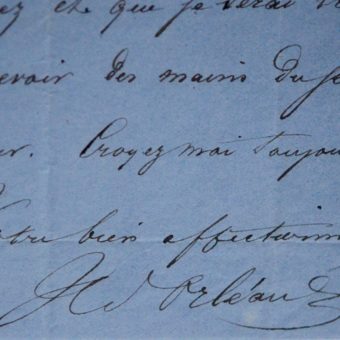 que je serai
des mains du
Croyez moi toujou
Votre bien affectionn
H d'Orléans